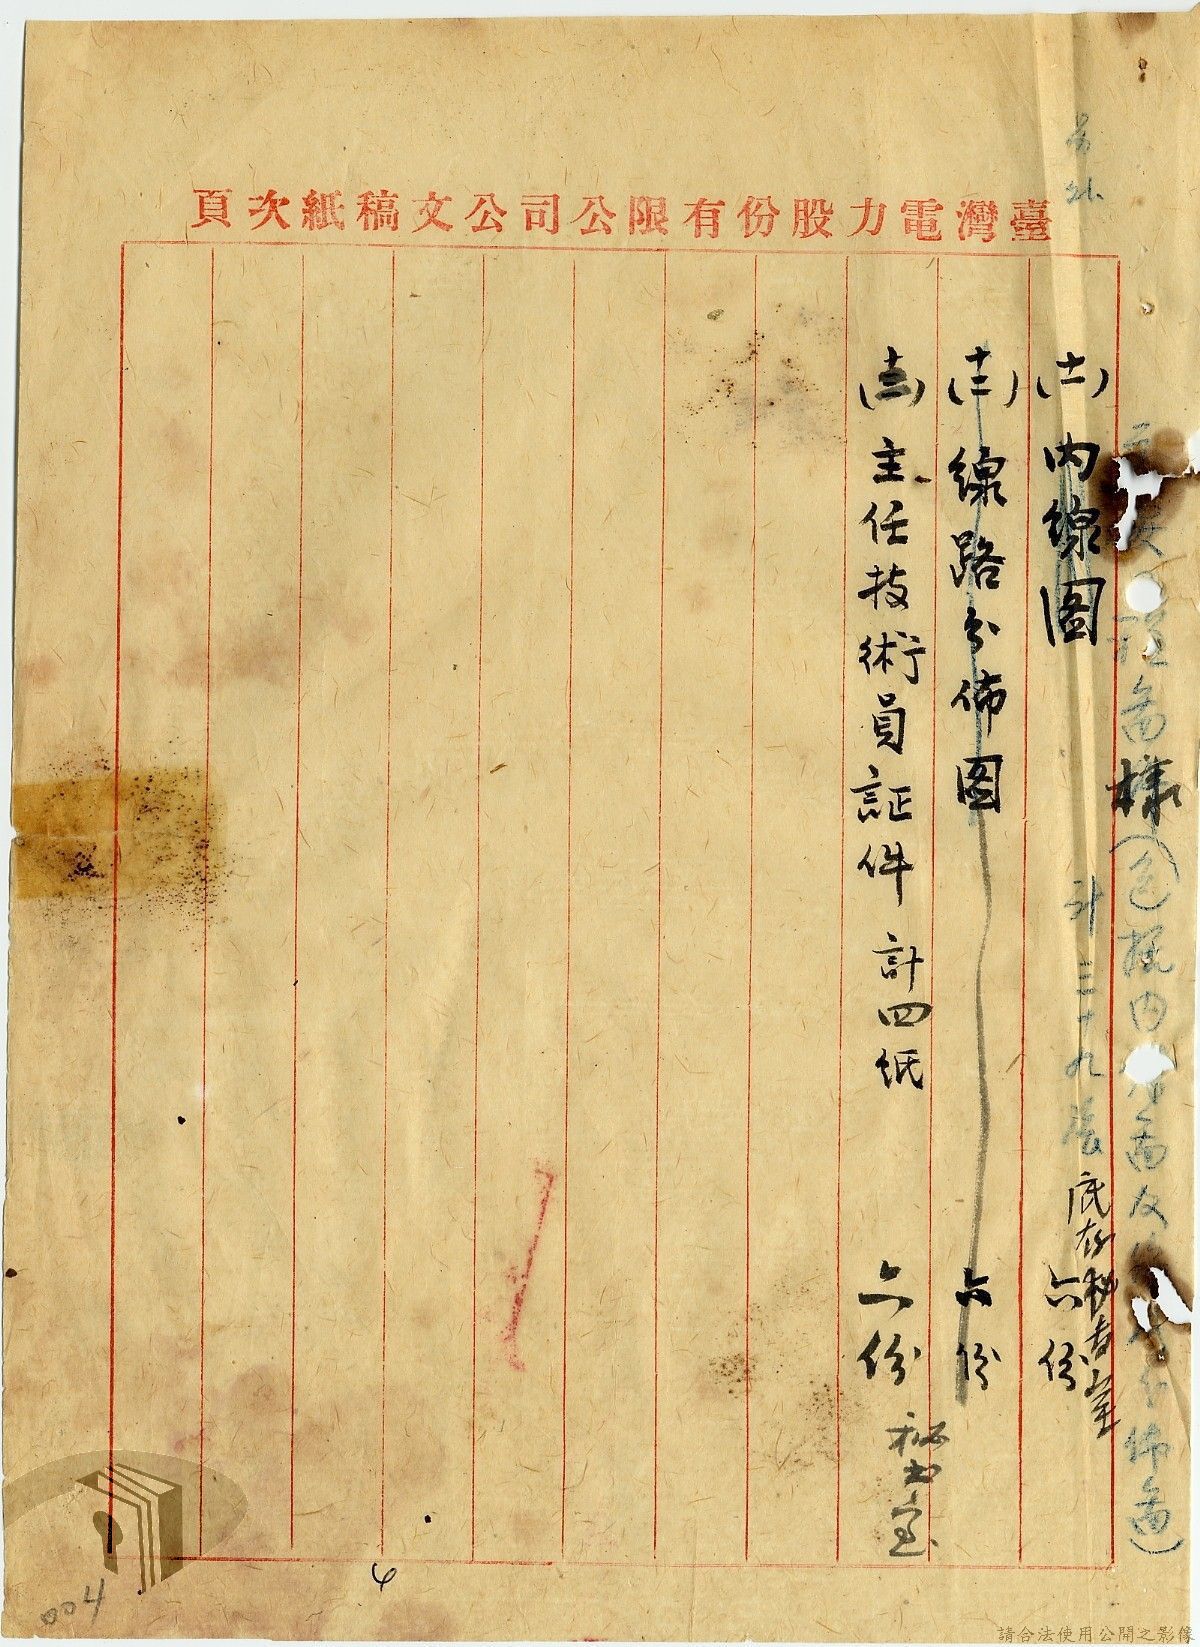 臺灣電力股份有限公司公文稿紙次頁
樣(包括內線圖及線路分佈圖)
計三十九張
底存秘書室
(十一)內線圖 六份
(十二)線路分佈圖 六份
(十三)主任技術員証件 計四紙 二份
秘書室
004
請合法使用公開之影像